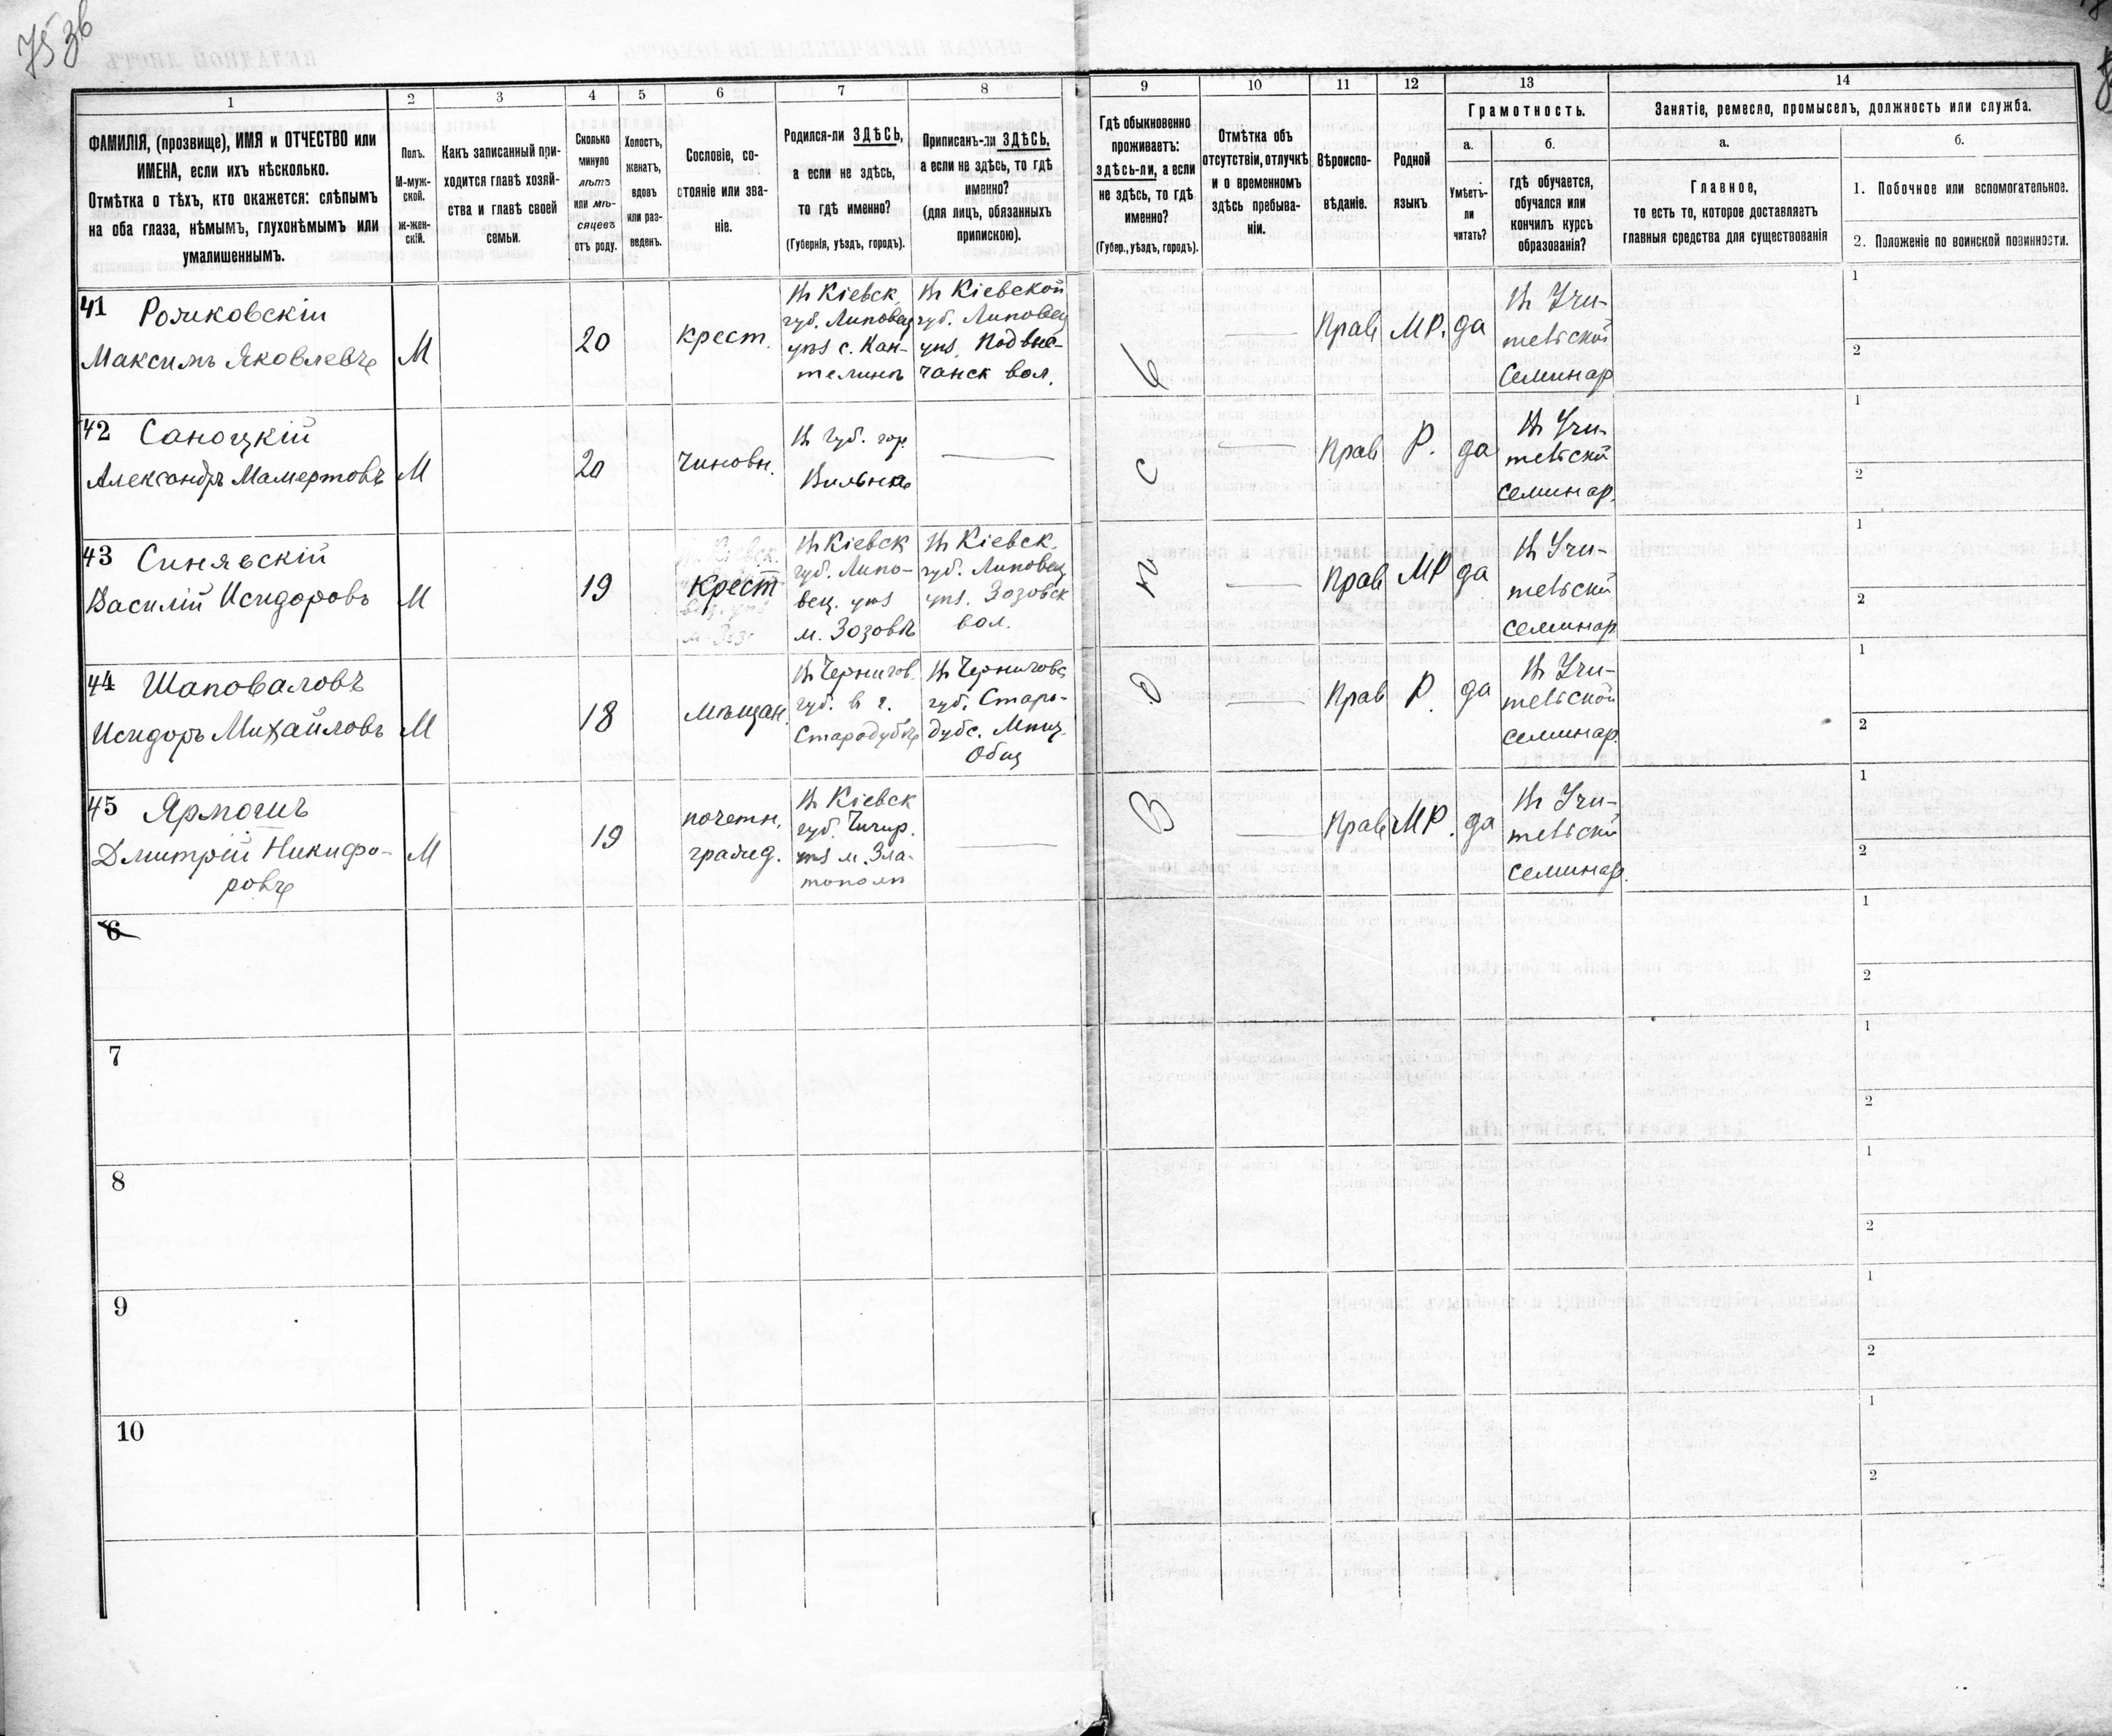 75 зв
1 2 3 4 5 6 7 8 9 10 11 12 13 14
ФАМИЛІЯ, (прозвище), ИМЯ и ОТЧЕСТВО или
ИМЕНА, если ихъ нѣсколько.
Отмѣтка о тѣхъ, кто окажется: слѣпымъ
на оба глаза, нѣмымъ, глухонѣмымъ или
умалишеннымъ.
Полъ.
М-муж-
ской.
ж-жен-
скій.
Какъ записанный при-
ходится главѣ хозяй-
ства и главѣ своей
семьи.
Сколько
минуло
лѣтъ
или мѣ-
сяцевъ
отъ роду.
Холостъ,
женатъ,
вдовъ
или раз-
веденъ.
Сословіе, со-
стояніе или зва-
ніе.
Родился-ли ЗДѢСЬ,
а если не здѣсь,
то гдѣ именно?
(Губернія, уѣздъ, городъ).
Приписанъ-ли ЗДѢСЬ,
а если не здѣсь, то гдѣ
именно?
(для лицъ, обязанныхъ
припискою).
Гдѣ обыкновенно
проживаетъ:
здѣсь-ли, а если
не здѣсь, то гдѣ
именно?
(Губер., уѣздъ, городъ).
Отмѣтка объ
отсутствіи, отлучкѣ
и о временномъ
здѣсь пребыва-
ніи.
Вѣроиспо-
вѣданіе.
Родной
языкъ
Грамотность.
а.
Умѣетъ-
ли
читать?
б.
гдѣ обучается,
обучался или
кончилъ курсъ
образованія?
Занятіе, ремесло, промыселъ, должность или служба.
а.
Главное,
то есть то, которое доставляетъ
главныя средства для существованія
б.
1. Побочное или вспомогательное.
2. Положеніе по воинской повинности.
41 Ромковскій
Максимъ Яковлевъ
М
20
крест.
Въ Кіевск.
губ. Липовец
уѣз с. Кан-
телинѣ
Въ Кіевской
губ. Липовец
уѣз.
вол.
Прав
МР.
да
Въ Учи-
тельской
Семинар
1
2
42 Саноцкій
Александръ Мамертовъ
М
20
чиновн.
Въ губ. гор.
Вильнѣ
Прав
Р.
да
Въ Учи-
тельской
семинар.
1
2
43 Синявскій
Василій Исидоровъ
М
19
Крест
Въ Кіевск
губ. Липо-
вец. уѣз
м. Зозовѣ
Въ Кіевск.
губ. Липовец
уѣз. Зозовск
вол.
Прав
МР
да
Въ Учи-
тельской
семинар
1
2
44 Шаповаловъ
Исидоръ Михайловъ
М
18
мѣщан.
Въ Чернигов.
губ. в г.
Стародубѣ
Въ Черниговс
губ. Старо-
дубс. Мѣщ.
Общ
Прав
Р.
да
Въ Учи-
тельской
семинар.
1
2
45 Ярмогинъ
Дмитрій Никифо-
ровъ
М
19
почетн.
гражд.
Въ Кіевск
губ. Чигир.
уѣз м. Зла-
тополѣ
Прав
МР.
да
Въ Учи-
тельской
семинар.
1
2
6
1
2
7
1
2
8
1
2
9
1
2
10
1
2